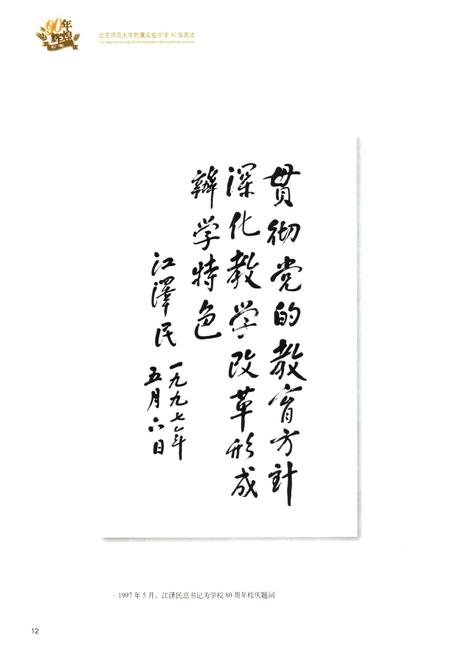 90年
辉煌
北京师范大学附属实验中学 90 年图志
贯彻党的教育方針
深化教学改革形成
辦学特色
江澤民
一九九七年
五月六日
· 1997 年 5 月，江泽民总书记为学校 80 周年校庆题词
12